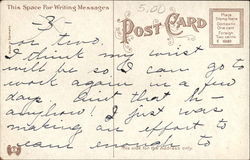 This Space For Writing Messages
5.00
-3-
POST CARD
Place Stamp Here
Domestic
One cent
Foreign
Two cents
or two.
I think my wrist
will be so I can go to
work again in a few
days and that h
anyhow! I just was
making an effort to
learn enough to